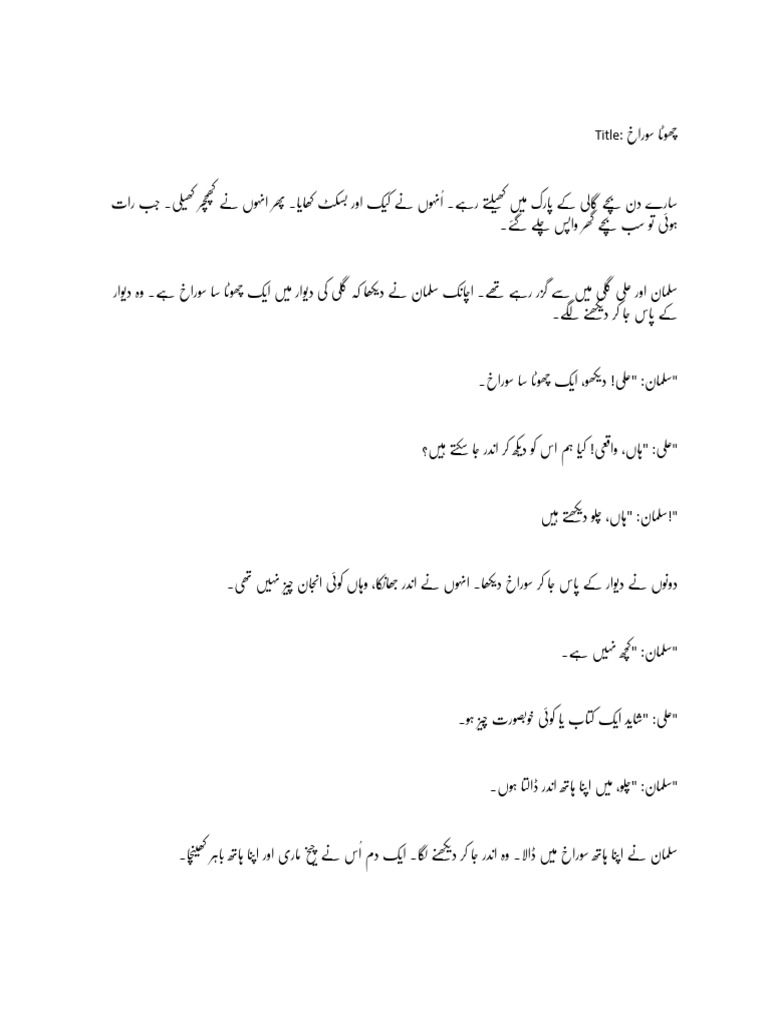 Title: چھوٹا سوراخ
سارے دن بچے گالی کے پارک میں کھیلتے رہے۔ اُنہوں نے کیک اور بسکٹ کھایا۔ پھر انہوں نے کھچڑ کھیلی۔ جب رات
ہوئی تو سب بچے گھر واپس چلے گئے۔
سلمان اور علی گلی میں سے گزر رہے تھے۔ اچانک سلمان نے دیکھا کہ گلی کی دیوار میں ایک چھوٹا سا سوراخ ہے۔ وہ دیوار
کے پاس جا کر دیکھنے لگے۔
"سلمان: "علی! دیکھو، ایک چھوٹا سا سوراخ۔
"علی: "ہاں، واقعی! کیا ہم اس کو دیکھ کر اندر جا سکتے ہیں؟
"!سلمان: "ہاں، چلو دیکھتے ہیں
دونوں نے دیوار کے پاس جا کر سوراخ دیکھا۔ انہوں نے اندر جھانکا، وہاں کوئی انجان چیز نہیں تھی۔
"سلمان: "کچھ نہیں ہے۔
"علی: "شاید ایک کتاب یا کوئی خوبصورت چیز ہو۔
"سلمان: "چلو، میں اپنا ہاتھ اندر ڈالتا ہوں۔
سلمان نے اپنا ہاتھ سوراخ میں ڈالا۔ وہ اندر جا کر دیکھنے لگا۔ ایک دم اُس نے چیخ ماری اور اپنا ہاتھ باہر کھینچا۔